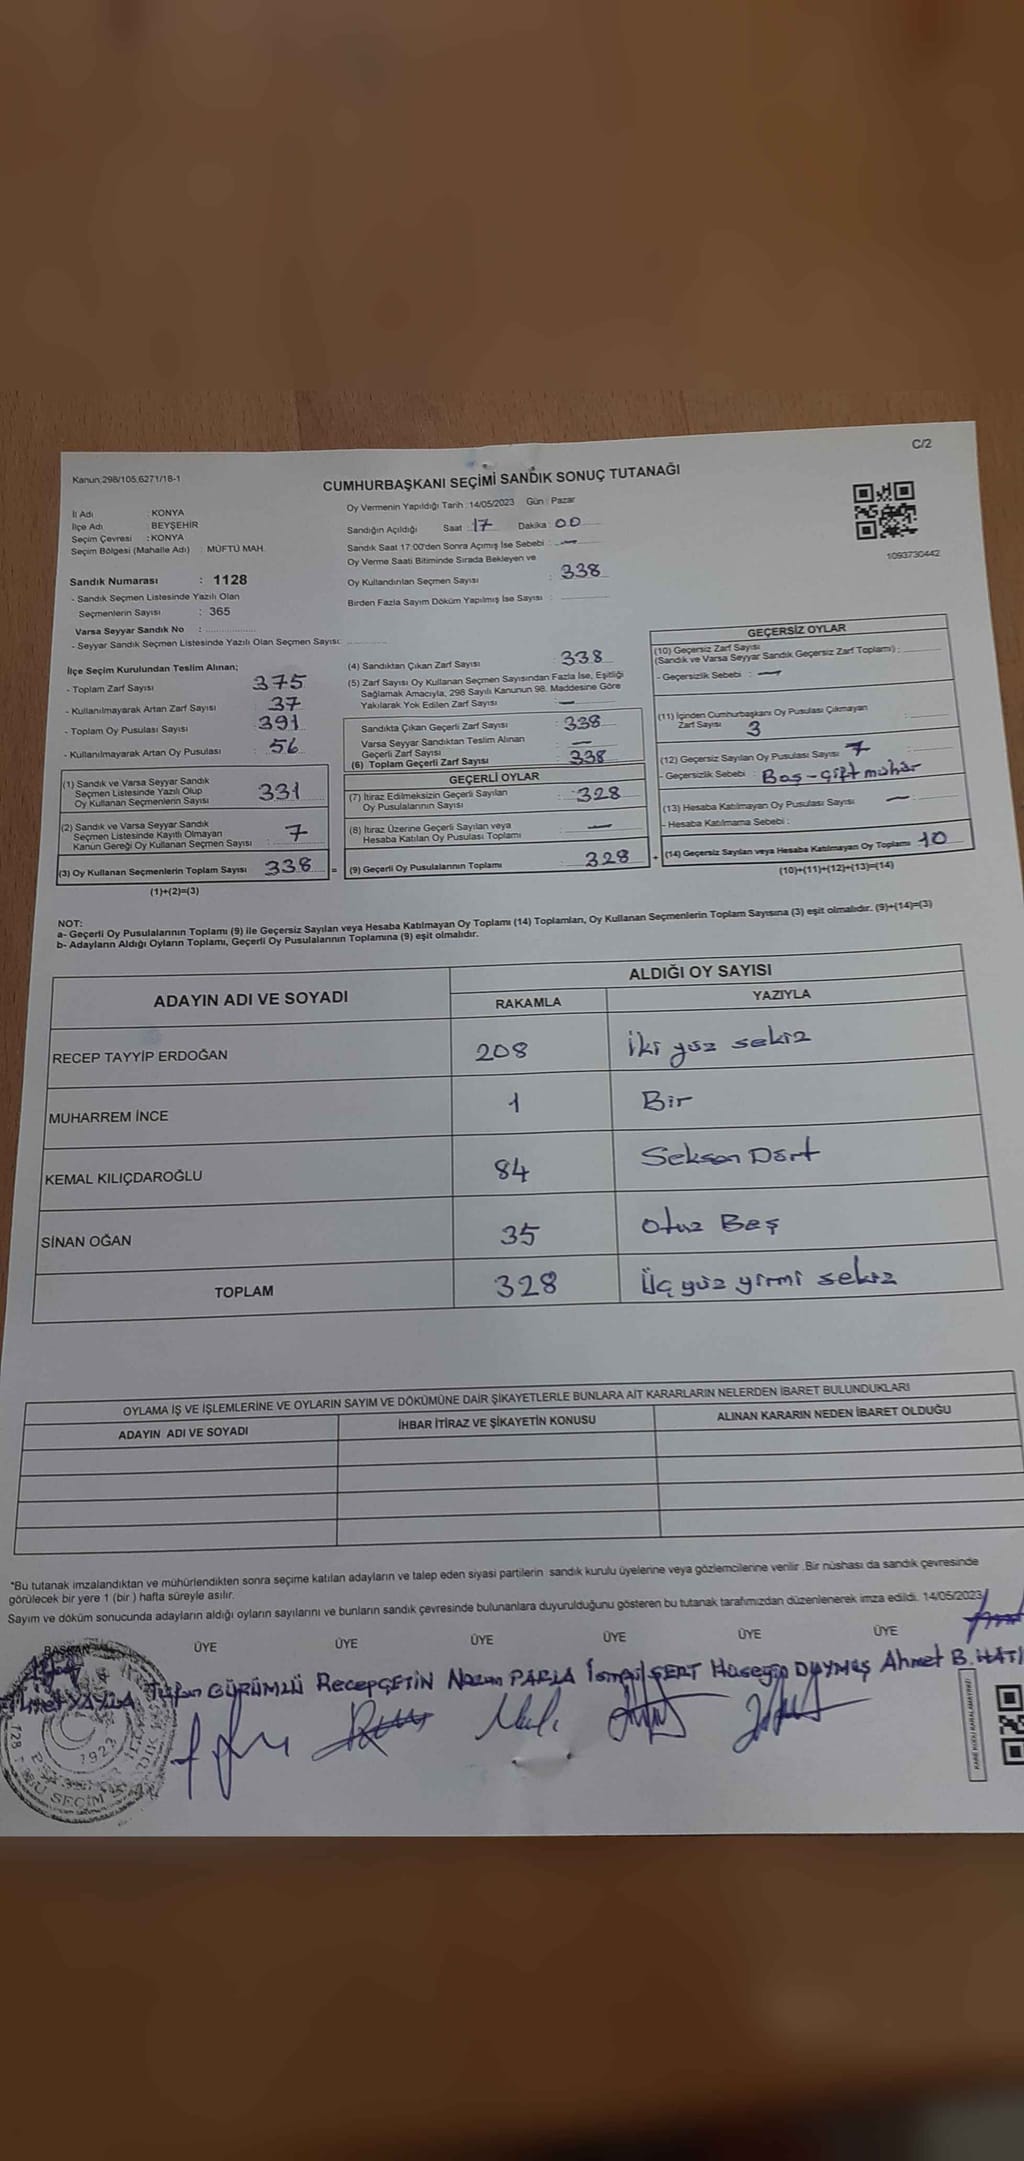 C/2
Kanun;298/105,6271/18-1
CUMHURBAŞKANI SEÇİMİ SANDIK SONUÇ TUTANAĞI
İl Adı : KONYA
İlçe Adı : BEYŞEHİR
Seçim Çevresi : KONYA
Seçim Bölgesi (Mahalle Adı) : MÜFTÜ MAH.
Sandık Numarası : 1128
- Sandık Seçmen Listesinde Yazılı Olan
Seçmenlerin Sayısı : 365
Varsa Seyyar Sandık No :
- Seyyar Sandık Seçmen Listesinde Yazılı Olan Seçmen Sayısı:
Oy Vermenin Yapıldığı Tarih :14/05/2023 Gün : Pazar
Sandığın Açıldığı Saat : 17 Dakika : 00
Sandık Saat 17:00'den Sonra Açımış İse Sebebi : —
Oy Verme Saati Bitiminde Sırada Bekleyen ve
Oy Kullandırılan Seçmen Sayısı : 338
Birden Fazla Sayım Döküm Yapılmış İse Sayısı :
1093730442
İlçe Seçim Kurulundan Teslim Alınan;
- Toplam Zarf Sayısı : 375
- Kullanılmayarak Artan Zarf Sayısı : 37
- Toplam Oy Pusulası Sayısı : 391
- Kullanılmayarak Artan Oy Pusulası : 56
(1) Sandık ve Varsa Seyyar Sandık
Seçmen Listesinde Yazılı Olup
Oy Kullanan Seçmenlerin Sayısı : 331
(2) Sandık ve Varsa Seyyar Sandık
Seçmen Listesinde Kayıtlı Olmayan
Kanun Gereği Oy Kullanan Seçmen Sayısı : 7
(3) Oy Kullanan Seçmenlerin Toplam Sayısı 338 =
(1)+(2)=(3)
(4) Sandıktan Çıkan Zarf Sayısı : 338
(5) Zarf Sayısı Oy Kullanan Seçmen Sayısından Fazla İse, Eşitliği
Sağlamak Amacıyla, 298 Sayılı Kanunun 98. Maddesine Göre
Yakılarak Yok Edilen Zarf Sayısı : —
Sandıkta Çıkan Geçerli Zarf Sayısı : 338
Varsa Seyyar Sandıktan Teslim Alınan
Geçerli Zarf Sayısı : —
(6) Toplam Geçerli Zarf Sayısı : 338
GEÇERLİ OYLAR
(7) İtiraz Edilmeksizin Geçerli Sayılan
Oy Pusulalarının Sayısı : 328
(8) İtiraz Üzerine Geçerli Sayılan veya
Hesaba Katılan Oy Pusulası Toplamı : —
(9) Geçerli Oy Pusulalarının Toplamı : 328 +
GEÇERSİZ OYLAR
(10) Geçersiz Zarf Sayısı
(Sandık ve Varsa Seyyar Sandık Geçersiz Zarf Toplamı) :
- Geçersizlik Sebebi : —
(11) İçinden Cumhurbaşkanı Oy Pusulası Çıkmayan
Zarf Sayısı 3 :
(12) Geçersiz Sayılan Oy Pusulası Sayısı : 7
- Geçersizlik Sebebi : Boş-Çift mühür
(13) Hesaba Katılmayan Oy Pusulası Sayısı : —
- Hesaba Katılmama Sebebi :
(14) Geçersiz Sayılan veya Hesaba Katılmayan Oy Toplamı : 10
(10)+(11)+(12)+(13)=(14)
NOT:
a- Geçerli Oy Pusulalarının Toplamı (9) ile Geçersiz Sayılan veya Hesaba Katılmayan Oy Toplamı (14) Toplamları, Oy Kullanan Seçmenlerin Toplam Sayısına (3) eşit olmalıdır. (9)+(14)=(3)
b- Adayların Aldığı Oyların Toplamı, Geçerli Oy Pusulalarının Toplamına (9) eşit olmalıdır.
ADAYIN ADI VE SOYADI ALDIĞI OY SAYISI
RAKAMLA YAZIYLA
RECEP TAYYİP ERDOĞAN 208 İki yüz sekiz
MUHARREM İNCE 1 Bir
KEMAL KILIÇDAROĞLU 84 Seksen Dört
SİNAN OĞAN 35 Otuz Beş
TOPLAM 328 Üç yüz yirmi sekiz
OYLAMA İŞ VE İŞLEMLERİNE VE OYLARIN SAYIM VE DÖKÜMÜNE DAİR ŞİKAYETLERLE BUNLARA AİT KARARLARIN NELERDEN İBARET BULUNDUKLARI
ADAYIN ADI VE SOYADI İHBAR İTİRAZ VE ŞİKAYETİN KONUSU ALINAN KARARIN NEDEN İBARET OLDUĞU
*Bu tutanak imzalandıktan ve mühürlendikten sonra seçime katılan adayların ve talep eden siyasi partilerin sandık kurulu üyelerine veya gözlemcilerine verilir .Bir nüshası da sandık çevresinde
görülecek bir yere 1 (bir ) hafta süreyle asılır.
Sayım ve döküm sonucunda adayların aldığı oyların sayılarını ve bunların sandık çevresinde bulunanlara duyurulduğunu gösteren bu tutanak tarafımızdan düzenlenerek imza edildi. 14/05/2023
BAŞKAN ÜYE ÜYE ÜYE ÜYE ÜYE ÜYE
GÜRÜMLÜ Recep ÇETİN Nazım PARLA İsmail SERT Hüseyin DUYMUŞ Ahmet B. HATI
1923
SEÇİM